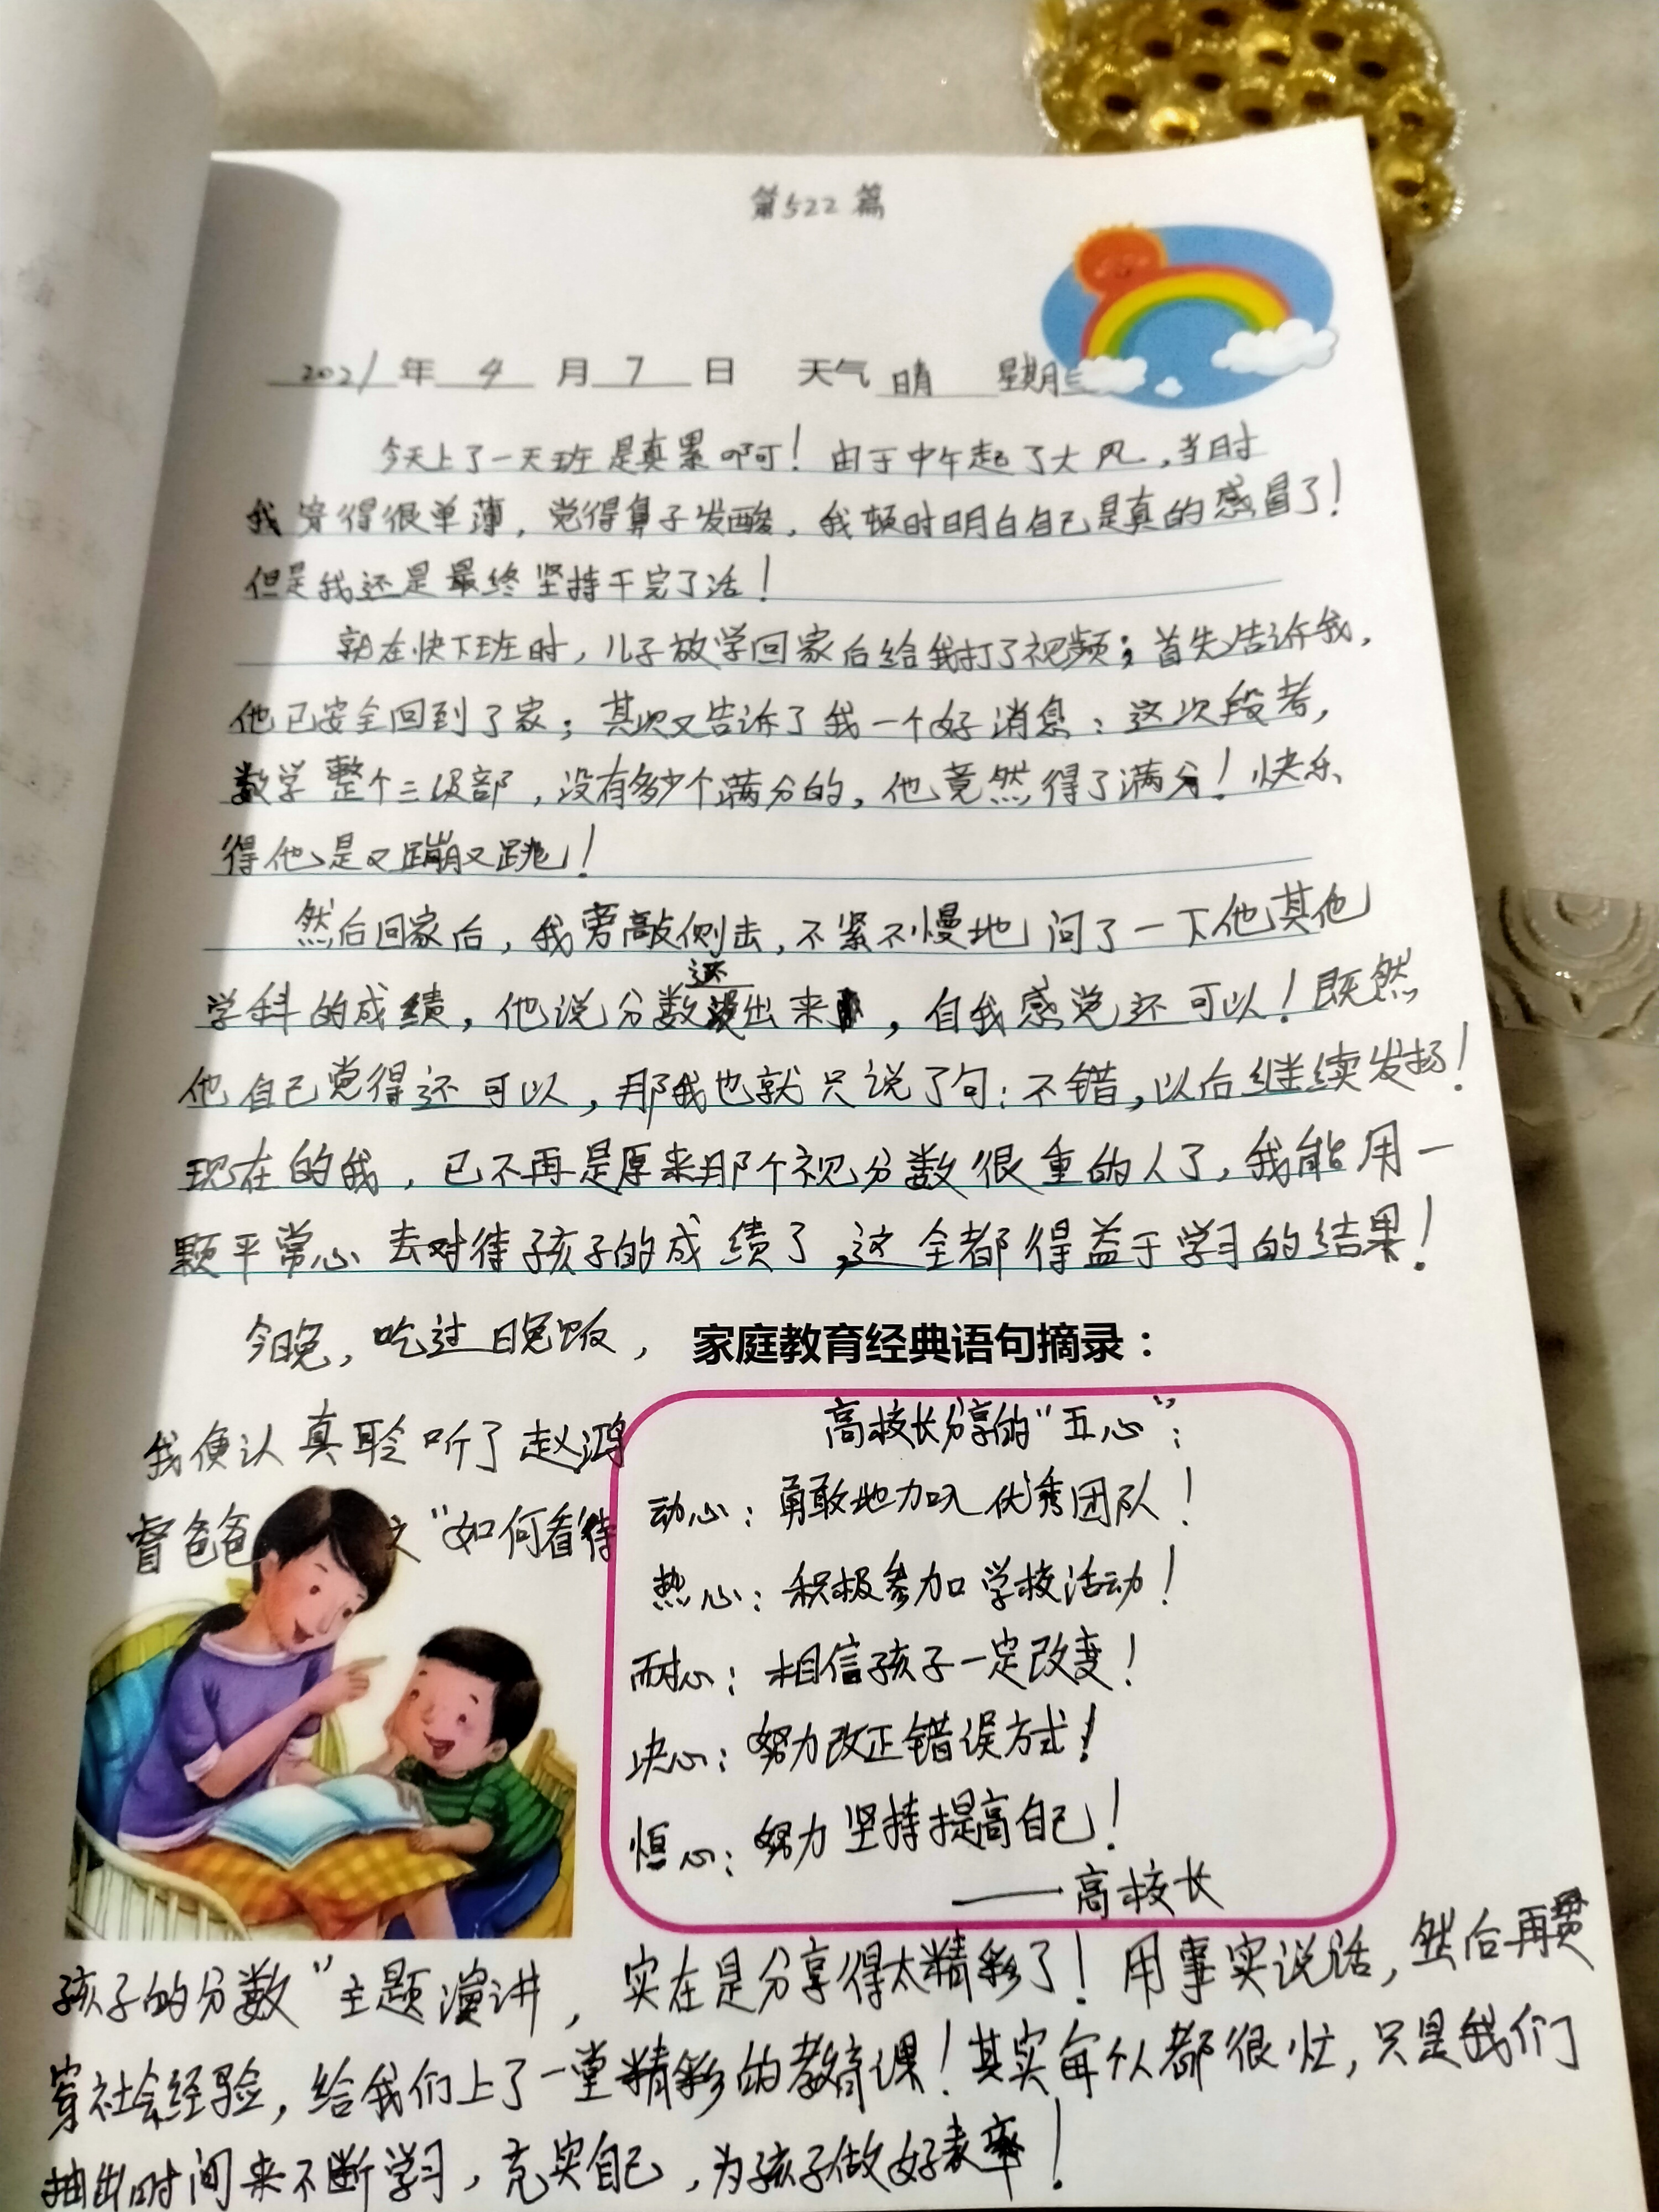 第522篇
2021年 4 月 7 日 天气 晴 星期三
今天上了一天班是真累啊！由于中午起了大风，当时
我穿得很单薄，觉得鼻子发酸，我顿时明白自己是真的感冒了！
但是我还是最终坚持干完了活！
就在快下班时，儿子放学回家后给我打了视频；首先告诉我，
他已安全回到了家；其次又告诉了我一个好消息：这次段考，
数学整个三级部，没有多少个满分的，他竟然得了满分！快乐
得他是又蹦又跳！
然后回家后，我旁敲侧击，不紧不慢地问了一下他其他
学科的成绩，他说分数还没出来，自我感觉还可以！既然
他自己觉得还可以，那我也就只说了句：不错，以后继续发扬！
现在的我，已不再是原来那个视分数很重的人了，我能用一
颗平常心去对待孩子的成绩了，这全都得益于学习的结果！
今晚，吃过晚饭，
我便认真聆听了赵鸿
睿爸爸之“如何看待
家庭教育经典语句摘录：
高校长分享的“五心”：
动心：勇敢地加入优秀团队！
热心：积极参加学校活动！
耐心：相信孩子一定改变！
决心：努力改正错误方式！
恒心：努力坚持提高自己！
——高校长
孩子的分数”主题演讲，实在是分享得太精彩了！用事实说话，然后再贯
穿社会经验，给我们上了一堂精彩的教育课！其实每个人都很忙，只是我们
抽出时间来不断学习，充实自己，为孩子做好表率！